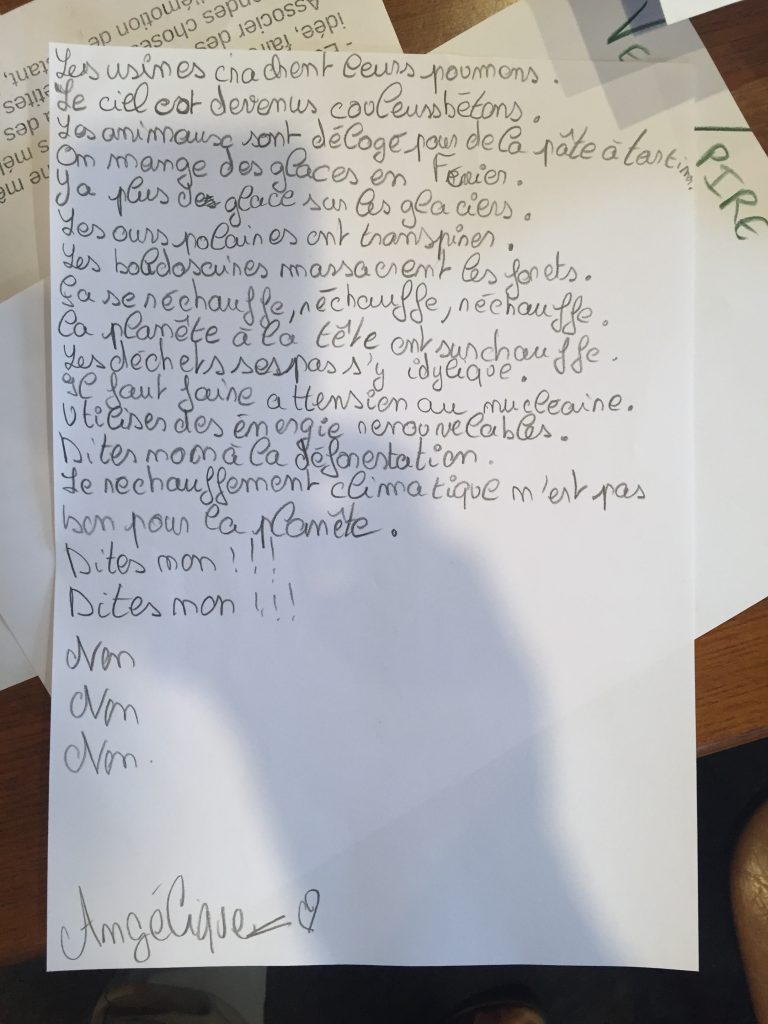 Les usines crachent leurs poumons.
Le ciel est devenus couleurs bétons.
Les animaux sont délogé pour de la pâte à tartiner.
On mange des glaces en Février.
Y a plus de glace sur les glaciers.
Les ours polaires ont transpirer.
Les boldosaires massacrent les forets.
Ça se réchauffe, réchauffe, réchauffe.
La planète à la tête ent surchauffe.
Les déchets ses pas s'y idylique.
Il faut faire attension au nucléaire.
Utiliser des énergie renouvelables.
Dites non à la déforestation.
Le rechauffement climatique n'est pas
bon pour la planète.
Dites non !!!
Dites non !!!
Non
Non
Non.
Angélique
VE
PIRE
Associer des